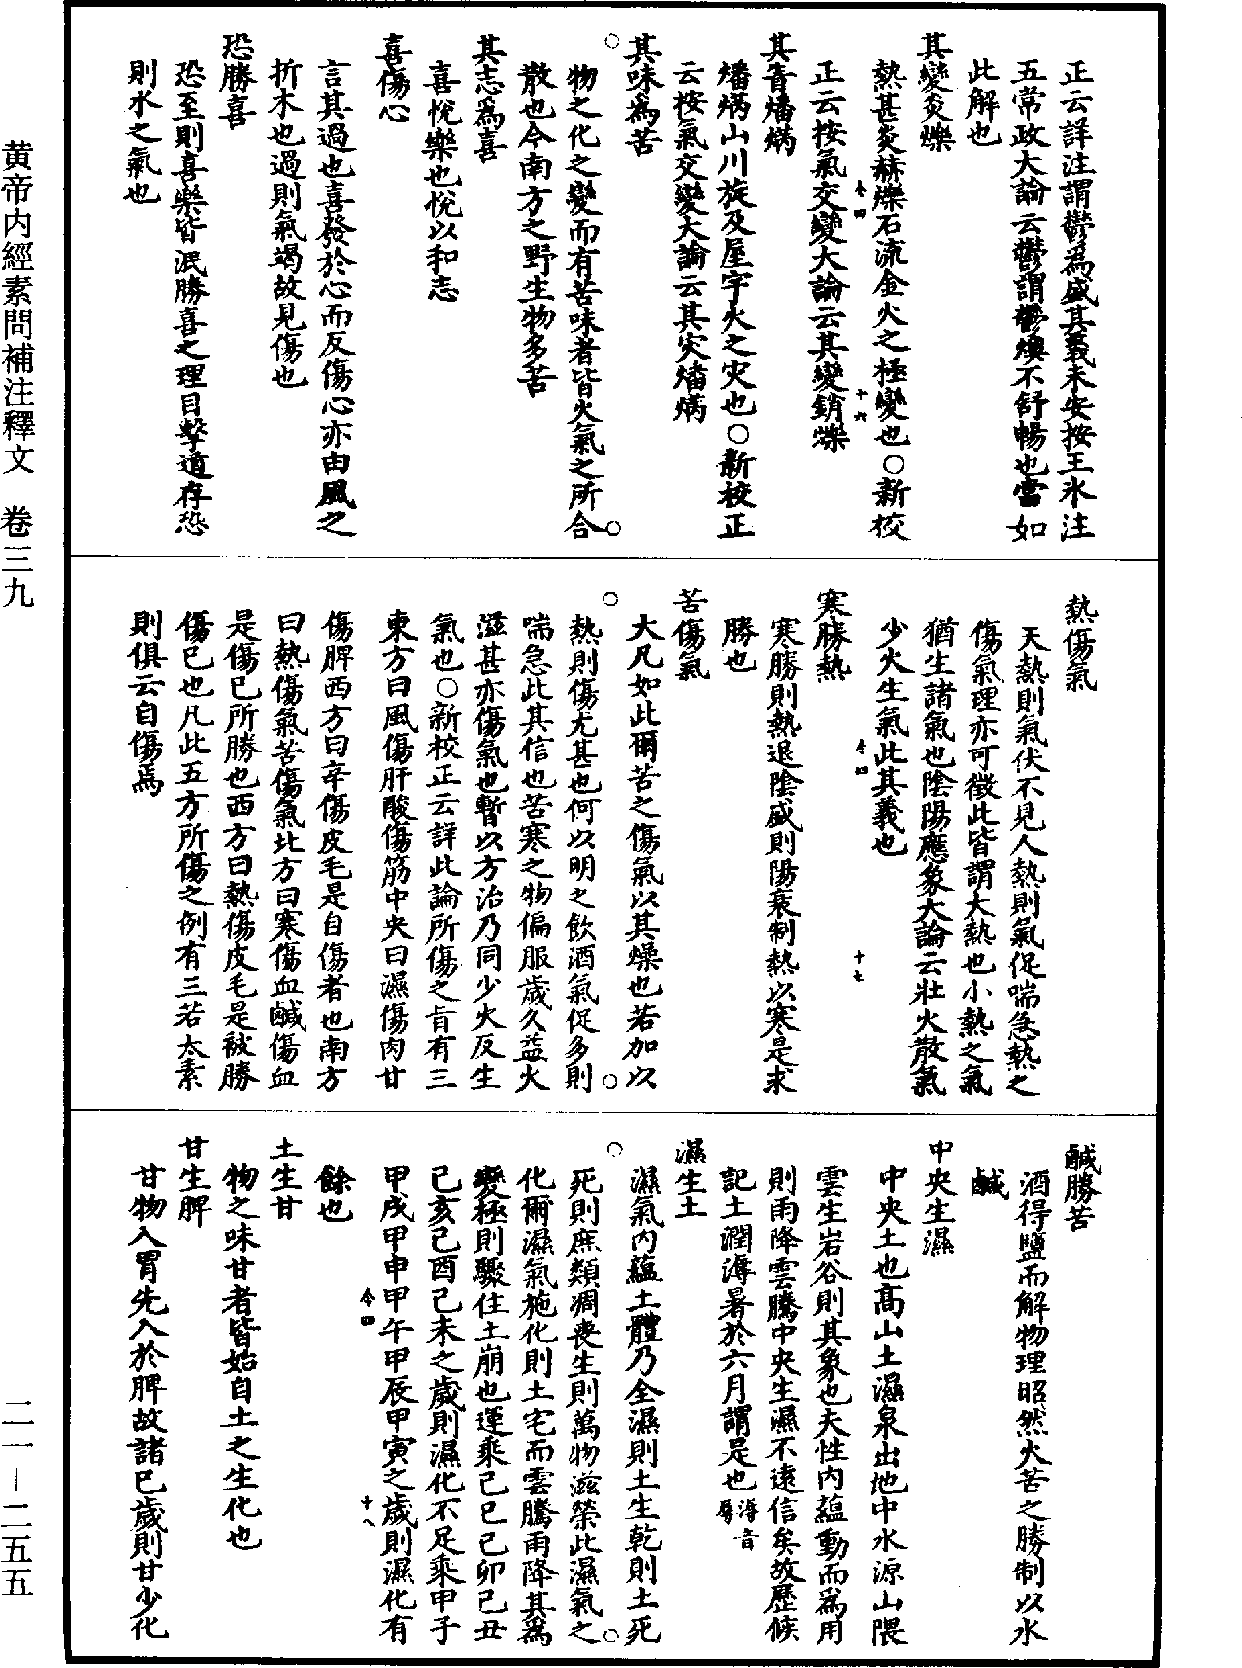 正云詳注謂鬱爲盛其義未安按王氷注
五常政大論云鬱謂鬱燠不舒暢也當如
此解也
其變炎爍
熱甚炎赫爍石流金火之極變也○新校
正云按氣交變大論云其變銷爍
其眚燔焫
燔焫山川旋及屋宇火之灾也○新校正
云按氣交變大論云其灾燔焫
其味爲苦
物之化之變而有苦味者皆火氣之所合
散也今南方之野生物多苦
其志爲喜
喜悅樂也悅以和志
喜傷心
言其過也喜發於心而反傷心亦由風之
折木也過則氣竭故見傷也
恐勝喜
恐至則喜樂皆泯勝喜之理目擊道存恐
則水之氣也
熱傷氣
天熱則氣伏不見人熱則氣促喘急熱之
傷氣理亦可徵此皆謂大熱也小熱之氣
猶生諸氣也陰陽應象大論云壯火散氣
少火生氣此其義也
寒勝熱
寒勝則熱退陰盛則陽衰制熱以寒是求
勝也
苦傷氣
大凡如此爾苦之傷氣以其燥也若加以
熱則傷尤甚也何以明之飲酒氣促多則
喘急此其信也苦寒之物偏服歲久益火
滋甚亦傷氣也暫以方治乃同少火反生
氣也○新校正云詳此論所傷之旨有三
東方曰風傷肝酸傷筋中央曰濕傷肉甘
傷脾西方曰辛傷皮毛是自傷者也南方
曰熱傷氣苦傷氣北方曰寒傷血鹹傷血
是傷已所勝也西方曰熱傷皮毛是被勝
傷已也凡此五方所傷之例有三若太素
則俱云自傷焉
鹹勝苦
酒得鹽而解物理昭然火苦之勝制以水
鹹
中央生濕
中央土也高山土濕泉出地中水源山隈
雲生岩谷則其象也夫性内蘊動而爲用
則雨降雲騰中央生濕不遠信矣故歷候
記土潤溽暑於六月謂是也溽音
辱
濕生土
濕氣内蘊土體乃全濕則土生乾則土死
死則庶類凋喪生則萬物滋榮此濕氣之
化爾濕氣施化則土宅而雲騰雨降其爲
變極則驟住土崩也運乘己巳己卯己丑
己亥己酉己未之歲則濕化不足乘甲子
甲戌甲申甲午甲辰甲寅之歲則濕化有
餘也
土生甘
物之味甘者皆始自土之生化也
甘生脾
甘物入胃先入於脾故諸已歲則甘少化
今四
十六
今四
十七
今四
十八
黄帝内經素問補注釋文 卷三九
二一－二五五